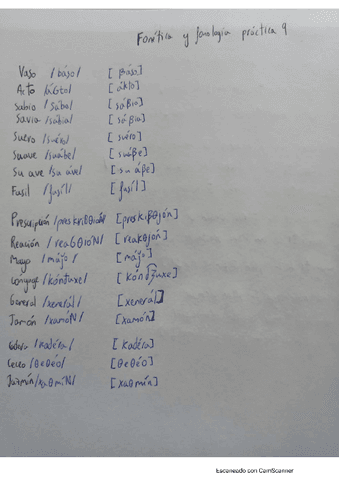 Fonética y fonología práctica 9
Vaso /báso/ [báso]
Acto /áGto/ [ákto]
Sabio /sábio/ [sáβio]
Savia /sábia/ [sáβia]
Suero /suéro/ [suéro]
Suave /suábe/ [suáβe]
Su ave /su ábe/ [su áβe]
Fusil /fusíl/ [fusíl]
Prescripción /preskribθióN/ [preskriβθjón]
Reacción /reaGθióN/ [reakθjón]
Mayo /májo/ [májo]
/xenerál/ [xenerál]
Jamón /xamóN/ [xamón]
/kadéra/ [kadéra]
Ceceo /θeθéo/ [θeθéo]
Jazmín /xaθmíN/ [xaθmín]
Escaneado con CamScanner